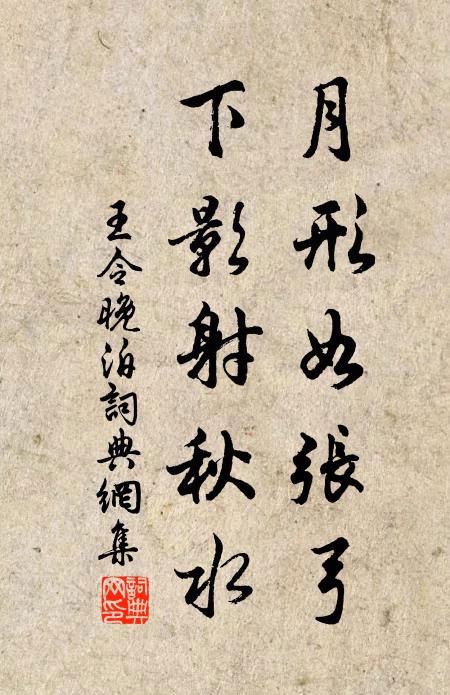 月形如張弓
下影射秋水
王令晚泊詞典網集
詞典網印